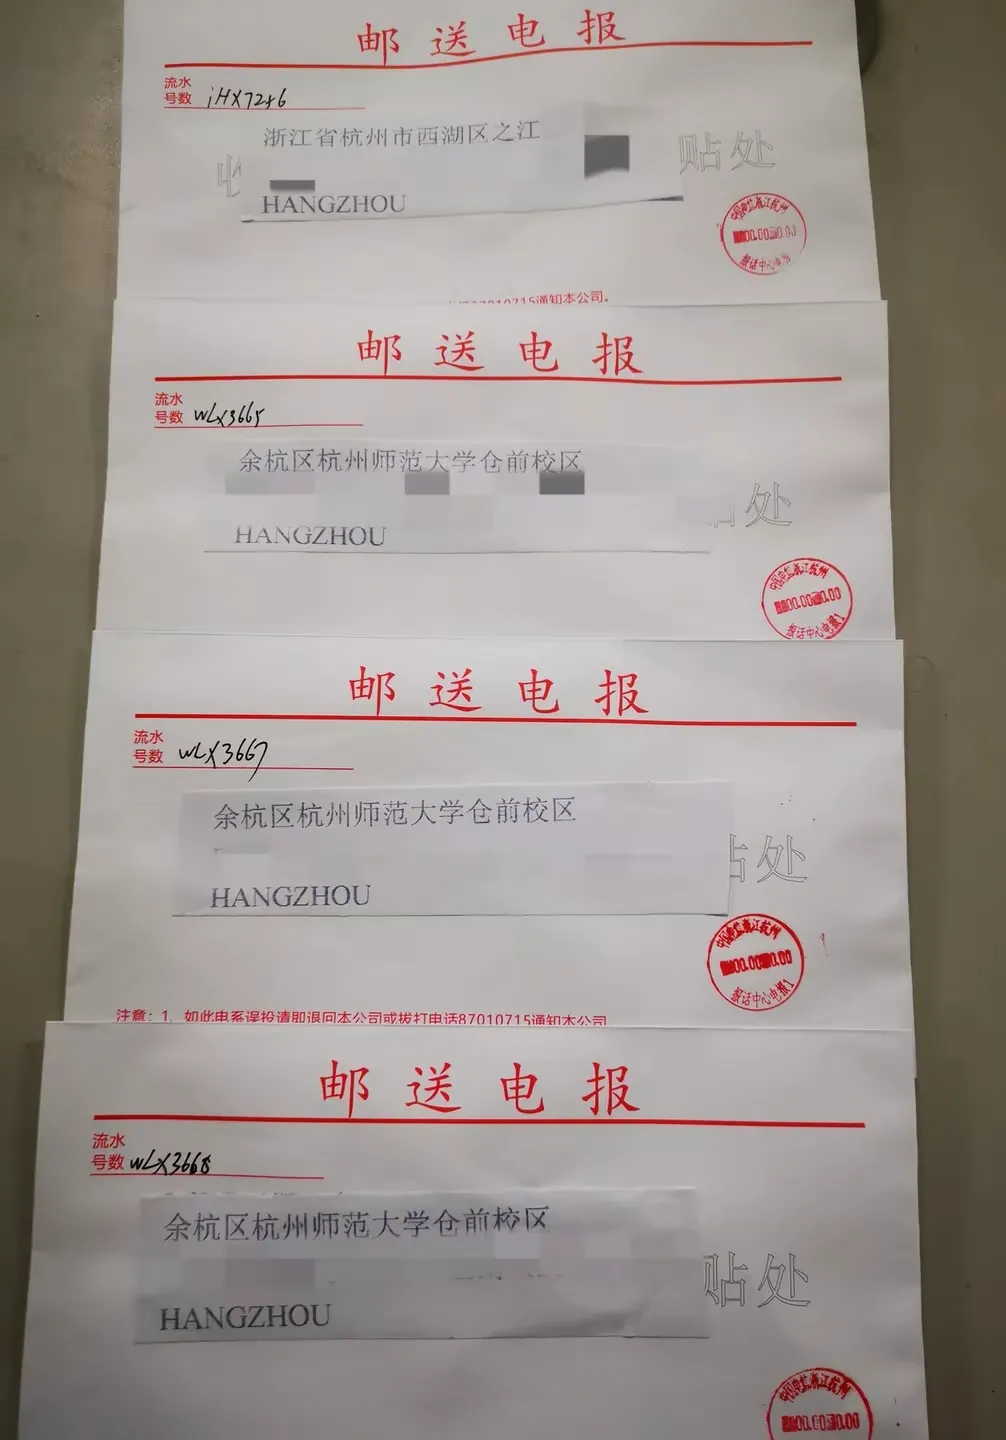 邮送电报
流水
号数 iHX7286
浙江省杭州市西湖区之江
贴处
HANGZHOU
中国电信浙江杭州
报话中心电报
87010715通知本公司。
邮送电报
流水
号数 WLX3665
余杭区杭州师范大学仓前校区
处
HANGZHOU
中国电信浙江杭州
报话中心电报1
邮送电报
流水
号数 WLX3667
余杭区杭州师范大学仓前校区
贴处
HANGZHOU
中国电信浙江杭州
报话中心电报1
注意：1、如此电系误投请即退回本公司或拨打电话87010715通知本公司
邮送电报
流水
号数 WLX3668
余杭区杭州师范大学仓前校区
贴处
HANGZHOU
中国电信浙江杭州